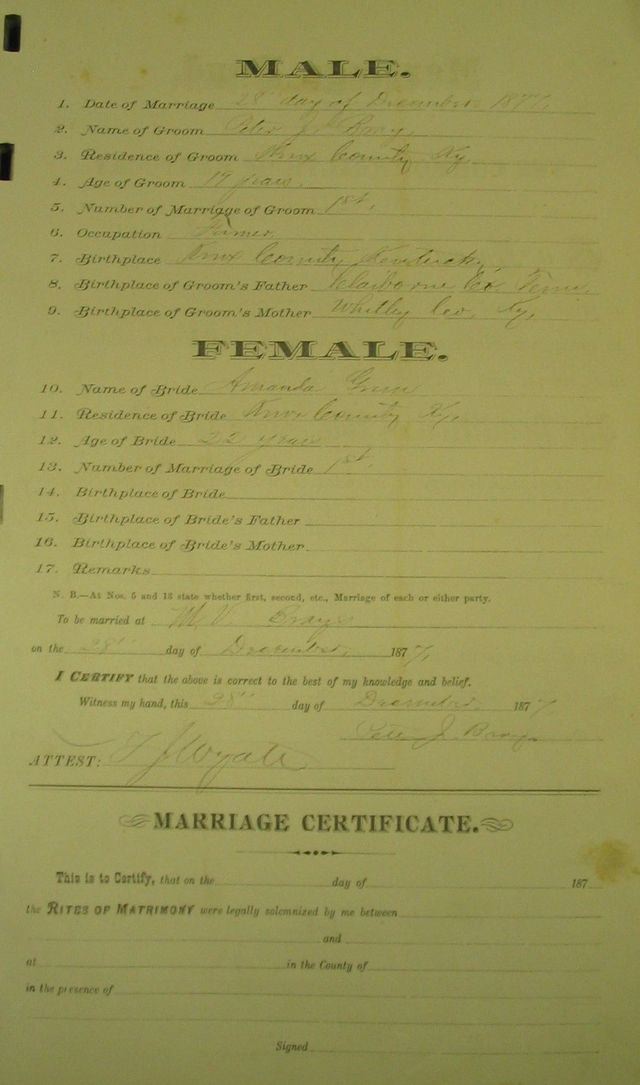 MALE.
1. Date of Marriage 28" day of December 1877,
2. Name of Groom Peter J. Bray,
3. Residence of Groom Knox County Ky.
4. Age of Groom 19 years.
5. Number of Marriage of Groom 1st.
6. Occupation Farmer,
7. Birthplace Knox County Kentucky
8. Birthplace of Groom's Father Claiborne Co. Tenn.
9. Birthplace of Groom's Mother Whitley Coo. Ky.
FEMALE.
10. Name of Bride Amanda
11. Residence of Bride Knox County Ky.
12. Age of Bride 22 years
13. Number of Marriage of Bride 1st.
14. Birthplace of Bride
15. Birthplace of Bride's Father
16. Birthplace of Bride's Mother
17. Remarks
N. B.—At Nos. 5 and 13 state whether first, second, etc., Marriage of each or either party.
To be married at M. V. Brays
on the 28" day of December, 1877,
I CERTIFY that the above is correct to the best of my knowledge and belief.
Witness my hand, this 28" day of December 1877,
Peter J. Bray
ATTEST: J Wyatt
MARRIAGE CERTIFICATE.
This is to Certify, that on the day of 187
the RITES OF MATRIMONY were legally solemnized by me between
and
at in the County of
in the presence of
Signed